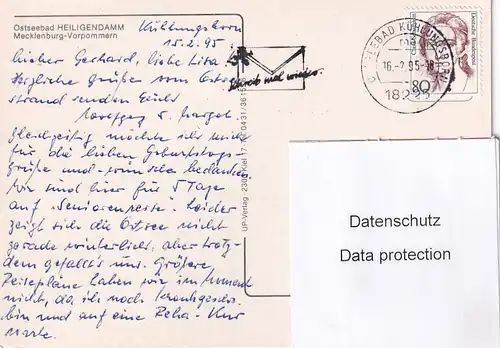 Ostseebad HEILIGENDAMM
Mecklenburg-Vorpommern
Kühlungsborn
15.2.95.
Lieber Gerhard, liebe Lisa!
Herzliche Grüße vom Ostsee-
strand senden Euch
Wolfgang u. Margot.
Gleichzeitig möchte ich mich
für die lieben Geburtstags-
grüße und -wünsche bedanken.
Wir sind hier für 5 Tage
auf "Seniorenreise". Leider
zeigt sich die Ostsee nicht
gerade winterlich, aber trotz-
dem gefällt's uns. Größere
Reisepläne haben wir im Moment
nicht, da ich noch krankgeschr.
bin und auf eine Reha-Kur
warte.
UP-Verlag · 2300 Kiel 17 · Tel. 0431/3615
Schreib mal wieder.
OSTSEEBAD KÜHLUNGSBORN
16.-2.95.-18
18225
Deutsche Bundespost
80
Datenschutz
Data protection